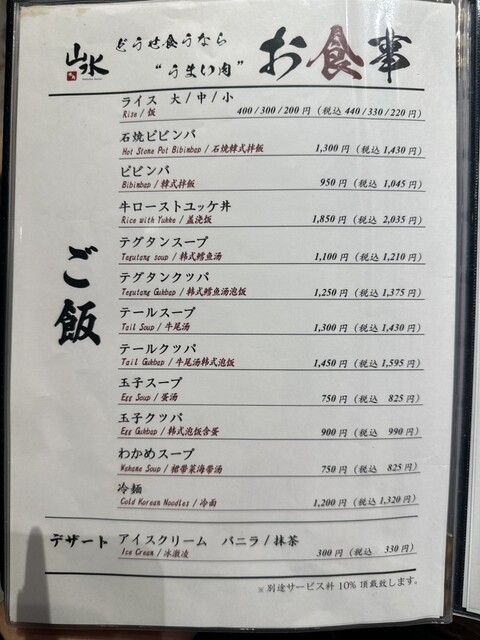 山水
どうせ食うなら
“うまい肉”
お食事
ご飯
ライス 大/中/小
Rise / 饭 400/300/200円 (税込 440/330/220円)
石焼ビビンバ
Hot Stone Pot Bibimbap / 石焼韓式拌飯 1,300円 (税込 1,430円)
ビビンバ
Bibimbap / 韓式拌飯 950円 (税込 1,045円)
牛ローストユッケ丼
Rice with Yukke / 盖浇饭 1,850円 (税込 2,035円)
テグタンスープ
Tegutang soup / 韩式鳕鱼汤 1,100円 (税込 1,210円)
テグタンクッパ
Tegutang Gukbap / 韩式鳕鱼汤泡饭 1,250円 (税込 1,375円)
テールスープ
Tail Soup / 牛尾汤 1,300円 (税込 1,430円)
テールクッパ
Tail Gukbap / 牛尾汤韩式泡饭 1,450円 (税込 1,595円)
玉子スープ
Egg Soup / 蛋汤 750円 (税込 825円)
玉子クッパ
Egg Gukbap / 韩式泡饭含蛋 900円 (税込 990円)
わかめスープ
Wakame Soup / 裙带菜海带汤 750円 (税込 825円)
冷麺
Cold Korean Noodles / 冷面 1,200円 (税込 1,320円)
デザート アイスクリーム バニラ/抹茶
Ice Cream / 冰激凌 300円 (税込 330円)
※別途サービス料10%頂戴致します。